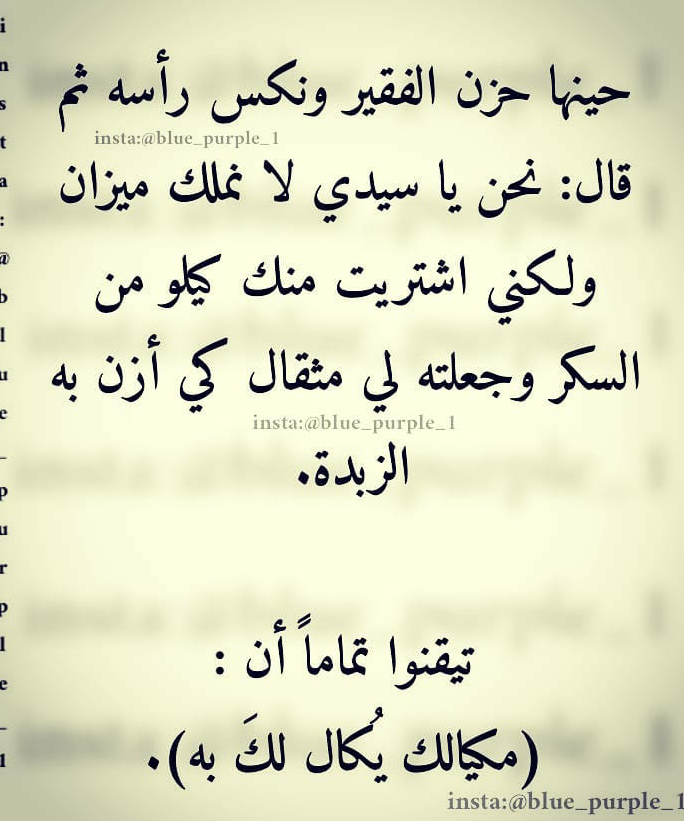 حينها حزن الفقير ونكس رأسه ثم
insta:@blue_purple_1
قال: نحن يا سيدي لا نملك ميزان
ولكني اشتريت منك كيلو من
السكر وجعلته لي مثقال كي أزن به
insta:@blue_purple_1
الزبدة.
تيقنوا تماماً أن :
(مكيالك يُكال لكَ به).
insta:@blue_purple_1
insta:@blue_purple_1